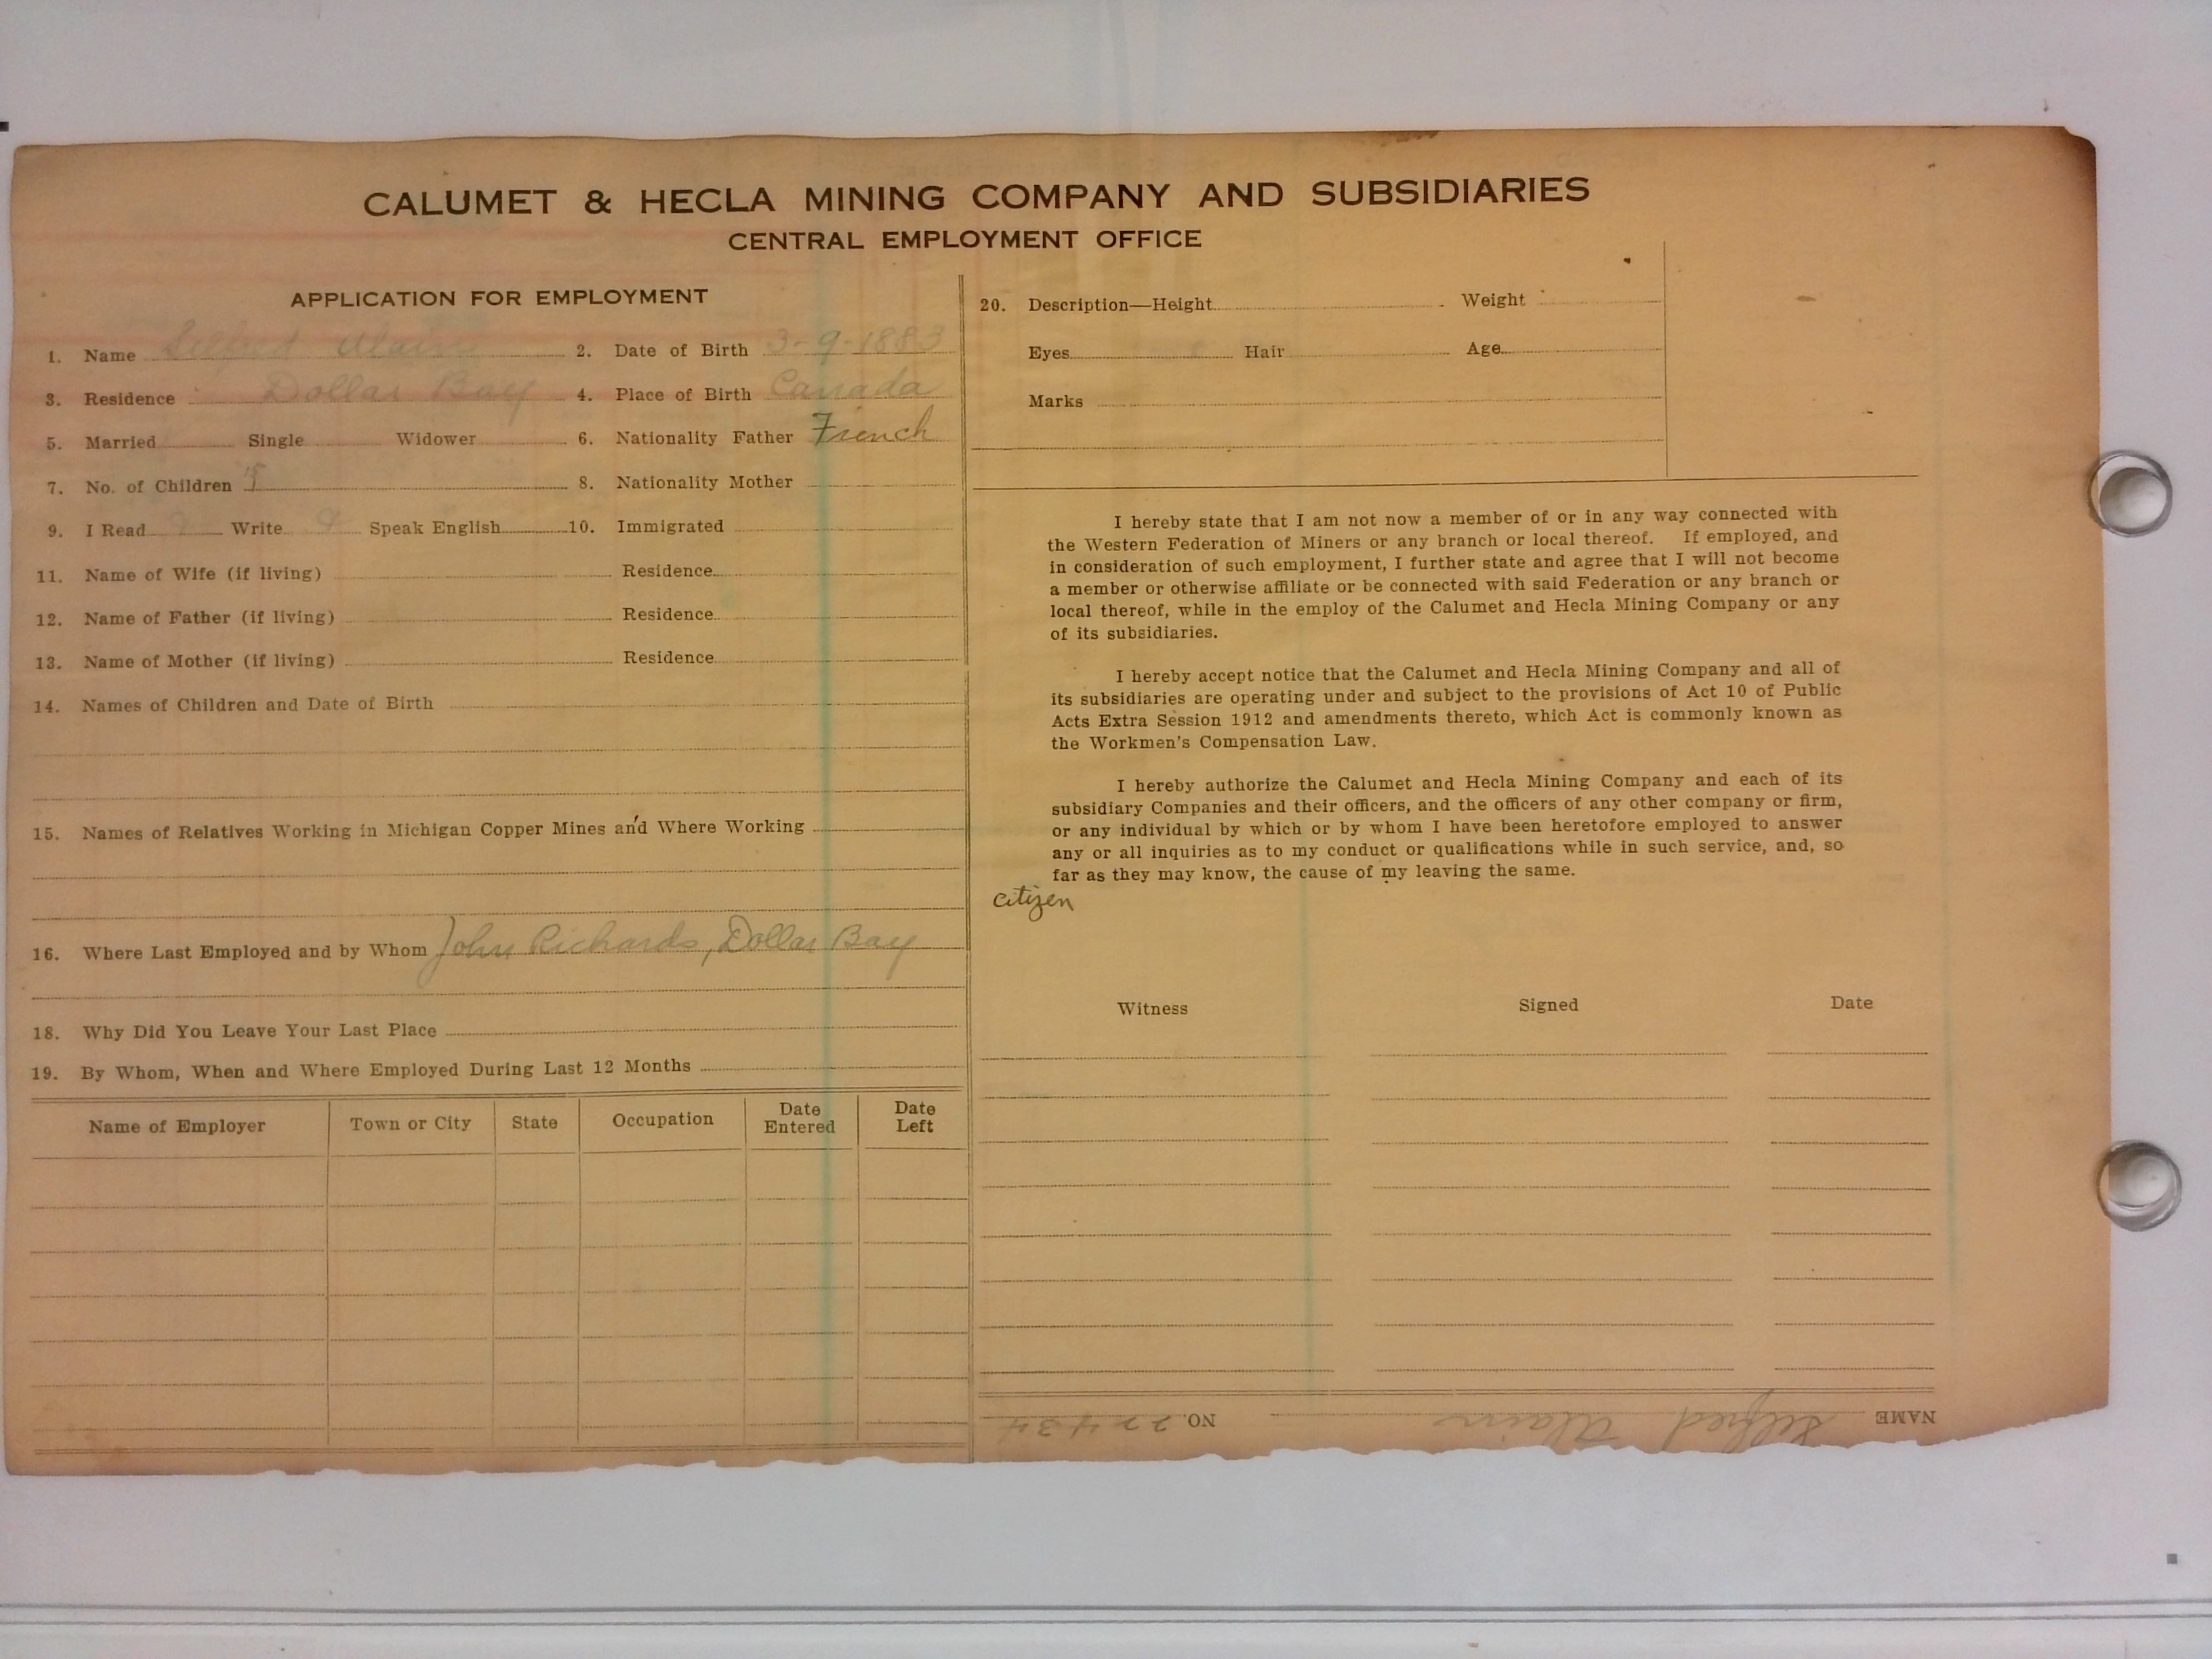 CALUMET & HECLA MINING COMPANY AND SUBSIDIARIES
CENTRAL EMPLOYMENT OFFICE
APPLICATION FOR EMPLOYMENT
1. Name Alain 2. Date of Birth 3-9-1883
3. Residence Dollar Bay 4. Place of Birth Canada
5. Married Single Widower 6. Nationality Father French
7. No. of Children 8. Nationality Mother
9. I Read Write Speak English 10. Immigrated
11. Name of Wife (if living) Residence
12. Name of Father (if living) Residence
13. Name of Mother (if living) Residence
14. Names of Children and Date of Birth
15. Names of Relatives Working in Michigan Copper Mines and Where Working
16. Where Last Employed and by Whom John Richards, Dollar Bay
18. Why Did You Leave Your Last Place
19. By Whom, When and Where Employed During Last 12 Months
Name of Employer Town or City State Occupation Date Entered Date Left
20. Description—Height Weight
Eyes Hair Age
Marks
I hereby state that I am not now a member of or in any way connected with
the Western Federation of Miners or any branch or local thereof. If employed, and
in consideration of such employment, I further state and agree that I will not become
a member or otherwise affiliate or be connected with said Federation or any branch or
local thereof, while in the employ of the Calumet and Hecla Mining Company or any
of its subsidiaries.
I hereby accept notice that the Calumet and Hecla Mining Company and all of
its subsidiaries are operating under and subject to the provisions of Act 10 of Public
Acts Extra Session 1912 and amendments thereto, which Act is commonly known as
the Workmen's Compensation Law.
I hereby authorize the Calumet and Hecla Mining Company and each of its
subsidiary Companies and their officers, and the officers of any other company or firm,
or any individual by which or by whom I have been heretofore employed to answer
any or all inquiries as to my conduct or qualifications while in such service, and, so
far as they may know, the cause of my leaving the same.
citizen
Witness Signed Date
NAME Alain NO. 22434